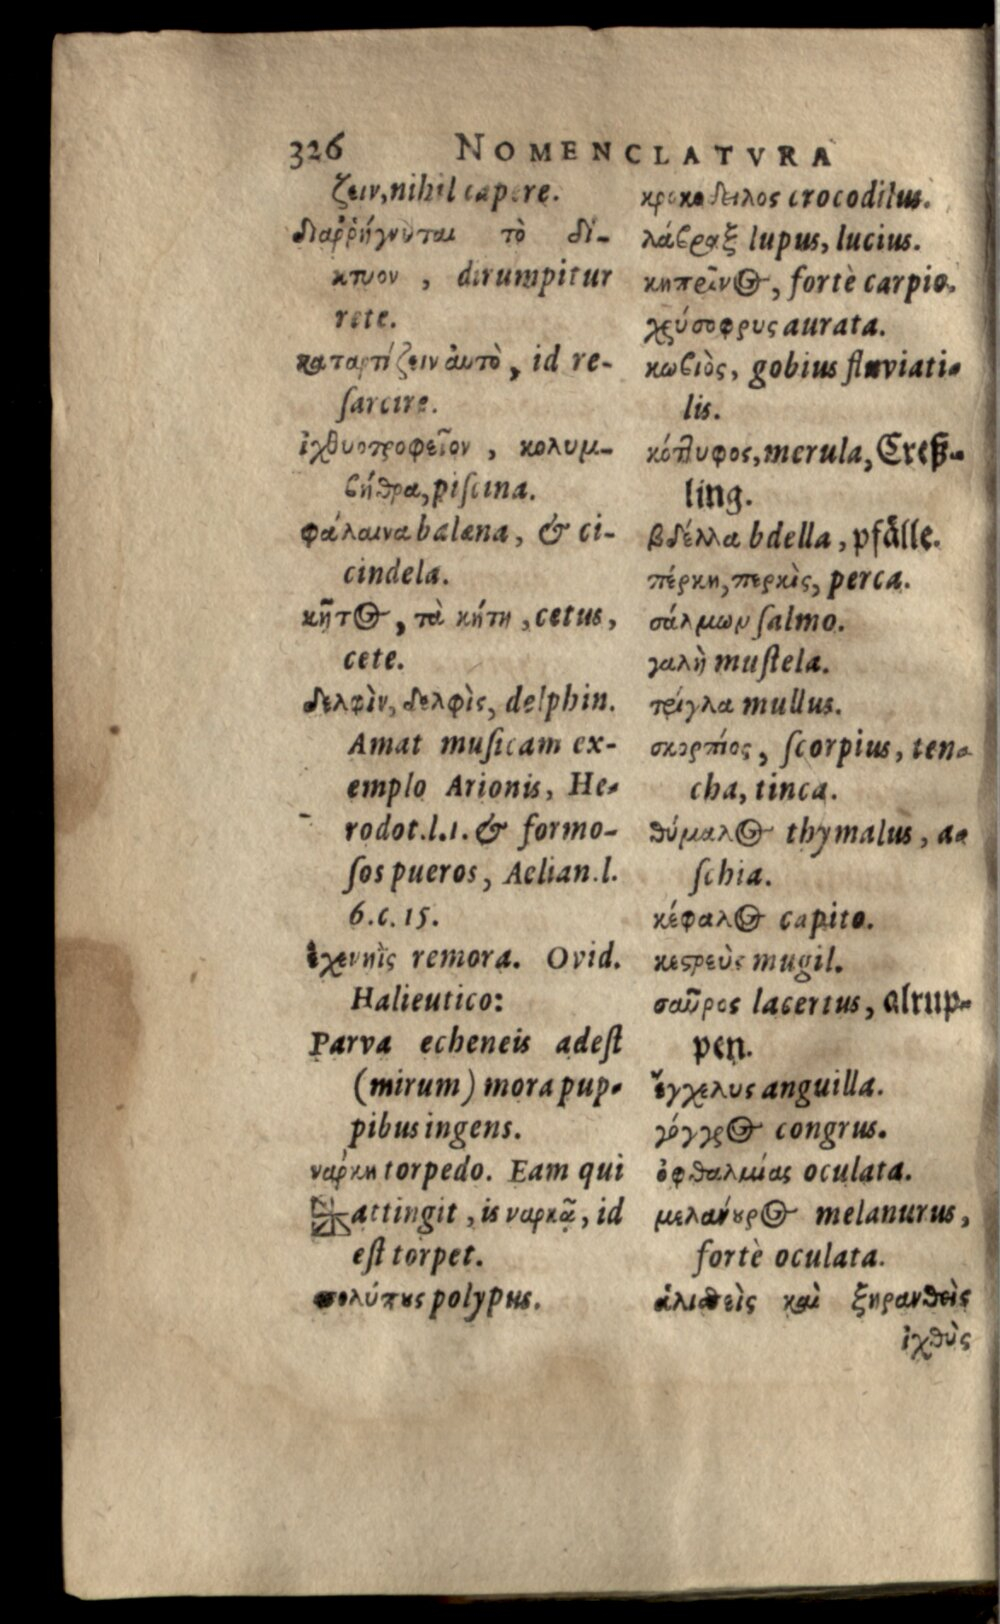 326 NOMENCLATVRA
ζειν, nihil capere.
διαῤῥήγνυται τὸ δί-
κτυον, dirumpitur
rete.
καταρτίζειν ἀυτὸ, id re-
ſarcire.
ἰχθυοτροφεῖον, κολυμ-
βήθρα, piſcina.
φάλαινα balæna, & ci-
cindela.
κῆτος, τὰ κήτη, cetus,
cete.
δελφὶν, δελφὶς, delphin.
Amat muſicam ex-
emplo Arionis, He-
rodot. l. 1. & formo-
ſos pueros, Aelian. l.
6. c. 15.
ἐχενηῒς remora. Ovid.
Halieutico:
Parva echeneis adeſt
(mirum) mora pup-
pibus ingens.
ναρκη torpedo. Eam qui
attingit, is ναρκᾶ, id
eſt torpet.
πολύπους polypus.
κροκοδειλος crocodilus.
λάβραξ lupus, lucius.
κηπρῖνος, fortè carpio.
χρύσοφρυς aurata.
κωβιὸς, gobius fluviati-
lis.
κότθυφος, merula, Creß-
ling.
βδέλλα bdella, pfålle.
πέρκη, περκὶς, perca.
σάλμων ſalmo.
γαλὴ muſtela.
τρίγλα mullus.
σκορπίος, ſcorpius, ten-
cha, tinca.
θύμαλος thymalus, a-
ſchia.
κέφαλος capito.
κεστρεὺς mugil.
σαῦρος lacertus, alrup-
pen.
ἔγχελυς anguilla.
γόγγρος congrus.
ὀφθαλμίας oculata.
μελανουρος melanurus,
fortè oculata.
ἁλισθεὶς καὶ ξηρανθεὶς
ἰχθὺς